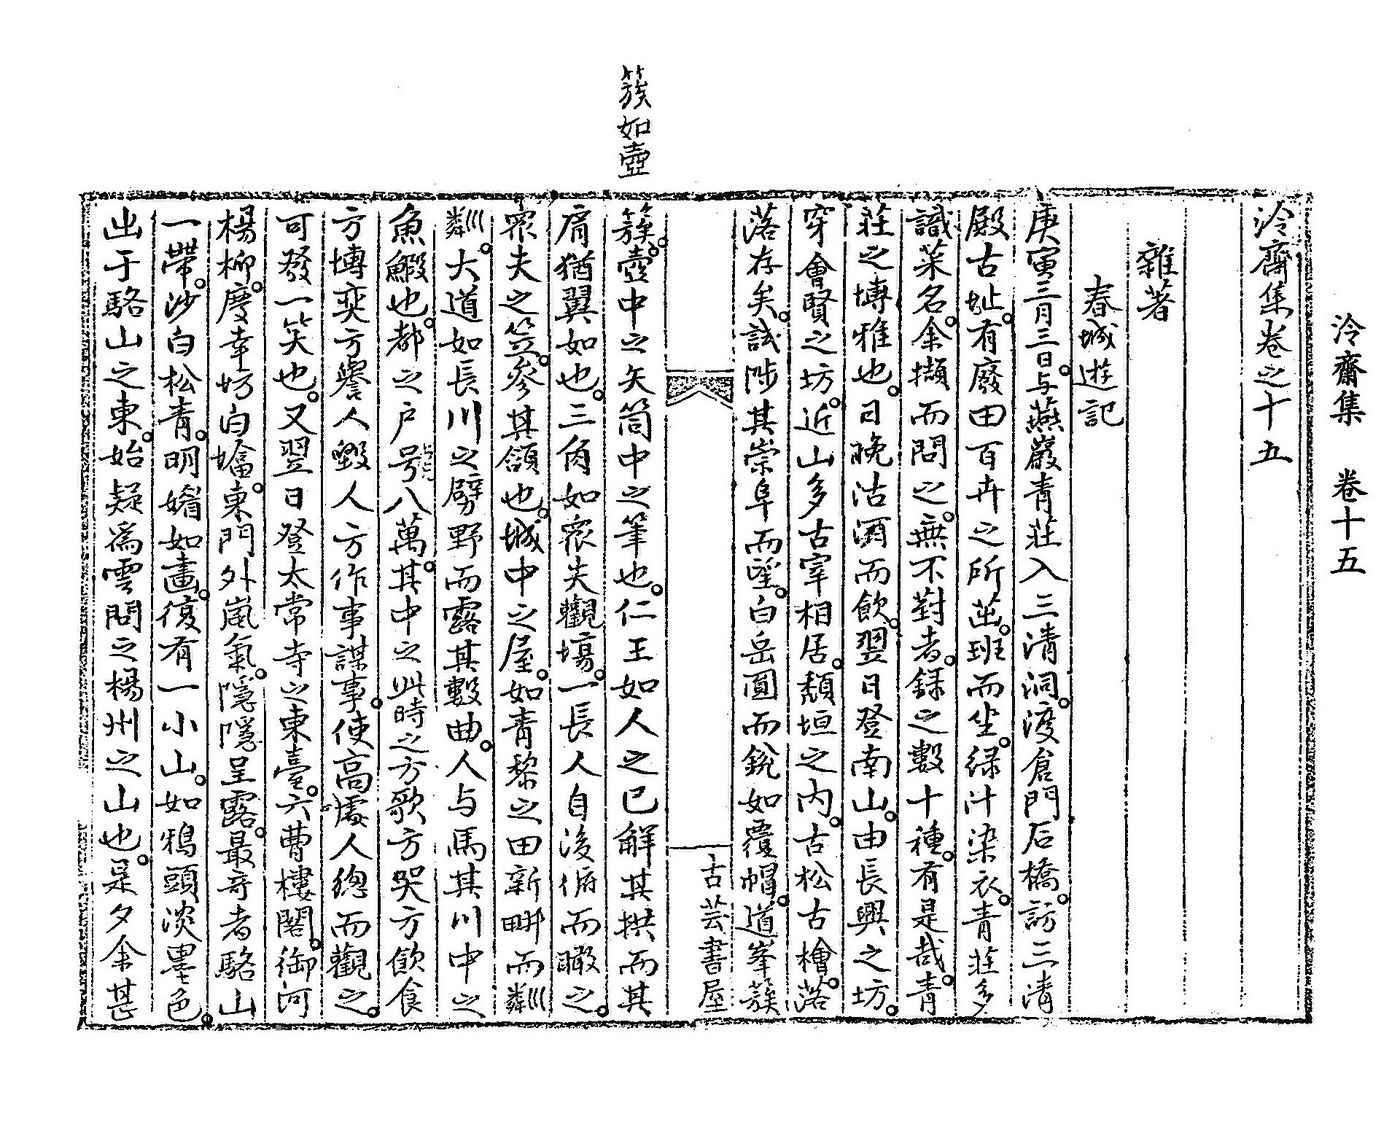 泠齋集 卷十五
泠齋集卷之十五
雜著
春城遊記
庚寅三月三日与燕巖青莊入三清洞渡倉門石橋訪三清
殿古址有廢田百卉之所茁班而坐綠汁染衣青莊多
識菜名余擷而問之無不對者錄之數十種有是哉青
莊之博雅也日晚沽酒而飲翌日登南山由長興之坊
穿會賢之坊近山多古宰相居頹垣之內古松古檜落
落存矣試陟其崇阜而望白岳圓而銳如覆帽道峯簇
古芸書屋
簇如壺
簇壺中之矢筒中之筆也仁王如人之已解其拱而其
肩猶翼如也三角如衆夫觀場一長人自後俯而瞰之
衆夫之笠參其頷也城中之屋如青黎之田新畊而粼巛
粼巛大道如長川之劈野而露其數曲人与馬其川中之
魚鰕也都之戶号八萬其中之此時之方歌方哭方飲食
方博奕方譽人毀人方作事謀事使高處人總而觀之
可發一笑也又翌日登太常寺之東臺六曹樓閣御河
楊柳慶幸坊白墖東門外嵐氣隱隱呈露最奇者駱山
一帶沙白松青明媚如畫復有一小山如鴉頭淡墨色
出于駱山之東始疑爲雲問之楊州之山也是夕余甚